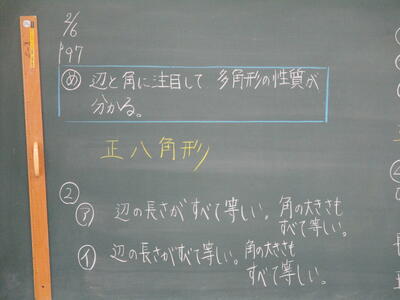 2/6
P97
め 辺と角に注目して 多角形の性質が
分かる。
正八角形
2
ア 辺の長さがすべて等しい。角の大きさも
すべて等しい。
イ 辺の長さがすべて等しい。角の大きさも
すべて等しい。